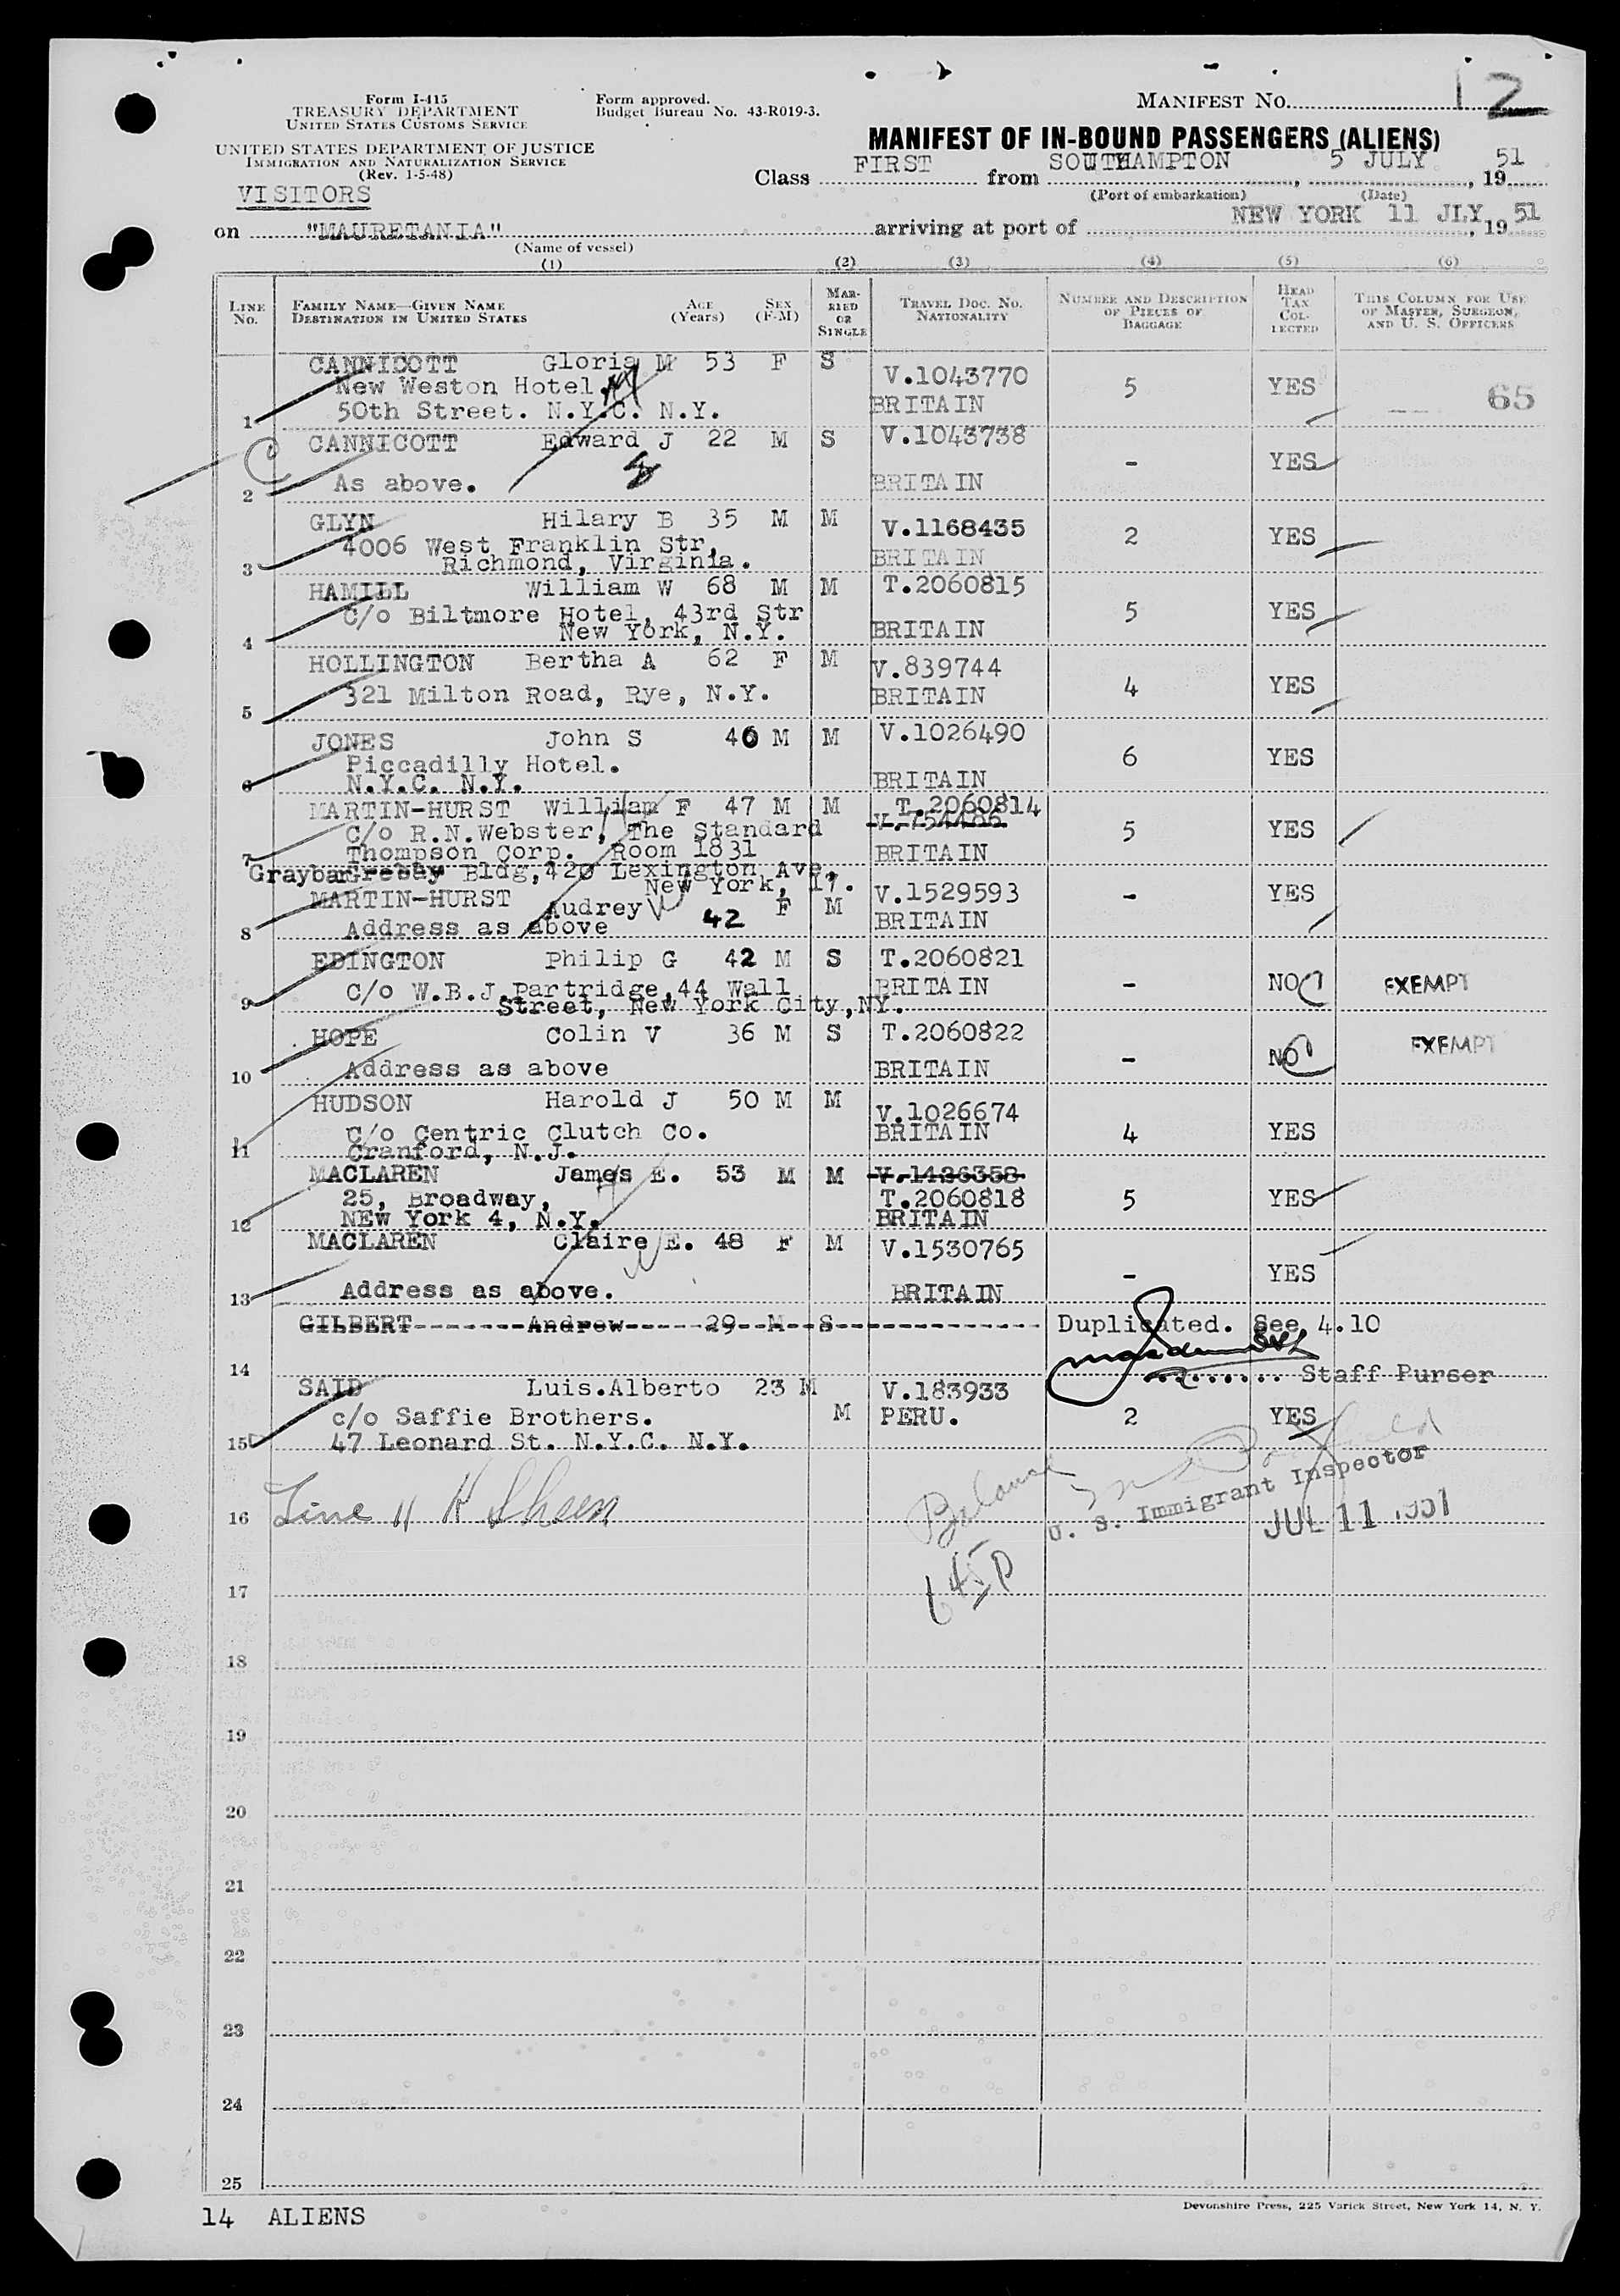 Form I-415
TREASURY DEPARTMENT
UNITED STATES CUSTOMS SERVICE
UNITED STATES DEPARTMENT OF JUSTICE
IMMIGRATION AND NATURALIZATION SERVICE
(Rev. 1-5-48)
VISITORS
Form approved.
Budget Bureau No. 43-R019-3.
MANIFEST No. 12
MANIFEST OF IN-BOUND PASSENGERS (ALIENS)
Class FIRST from SOUTHAMPTON, 5 JULY, 19 51
(Port of embarkation) (Date)
on "MAURETANIA" arriving at port of NEW YORK 11 JLY, 19 51
(Name of vessel)
(1) (2) (3) (4) (5) (6)
LINE No.
FAMILY NAME—GIVEN NAME
DESTINATION IN UNITED STATES
AGE (Years)
SEX (F-M)
MARRIED OR SINGLE
TRAVEL DOC. NO. NATIONALITY
NUMBER AND DESCRIPTION OF PIECES OF BAGGAGE
HEAD TAX COLLECTED
THIS COLUMN FOR USE OF MASTER, SURGEON, AND U. S. OFFICERS
CANNICOTT Gloria M 53 F S V.1043770 5 YES 65
New Weston Hotel.
1 50th Street. N.Y.C. N.Y. BRITAIN
CANNICOTT Edward J 22 M S V.1043738 - YES
2 As above. BRITAIN
GLYN Hilary B 35 M M V.1168435 2 YES
4006 West Franklin Str,
3 Richmond, Virginia. BRITAIN
HAMILL William W 68 M M T.2060815 5 YES
C/o Biltmore Hotel, 43rd Str
4 New York, N.Y. BRITAIN
HOLLINGTON Bertha A 62 F M V.839744 4 YES
5 321 Milton Road, Rye, N.Y. BRITAIN
JONES John S 46 M M V.1026490 6 YES
Piccadilly Hotel.
6 N.Y.C. N.Y. BRITAIN
MARTIN-HURST William F 47 M M T.2060814 5 YES
C/o R.N.Webster, The Standard V.754486
7 Thompson Corp. Room 1831 BRITAIN
Graybar Bldg, 420 Lexington Ave,
New York, 17.
MARTIN-HURST Audrey 42 F M V.1529593 - YES
8 Address as above BRITAIN
EDINGTON Philip G 42 M S T.2060821 - NO EXEMPT
C/o W.B.J.Partridge,44 Wall BRITAIN
9 Street, New York City,NY.
HOPE Colin V 36 M S T.2060822 - NO EXEMPT
10 Address as above BRITAIN
HUDSON Harold J 50 M M V.1026674 4 YES
C/o Centric Clutch Co. BRITAIN
11 Cranford, N.J.
MACLAREN James E. 53 M M V.1426358
25, Broadway, T.2060818 5 YES
12 NEW York 4, N.Y. BRITAIN
MACLAREN Claire E. 48 F M V.1530765 - YES
13 Address as above. BRITAIN
GILBERT Andrew 29 M S Duplicated. See 4.10
14 Staff Purser
SAID Luis.Alberto 23 M V.183933
c/o Saffie Brothers. M PERU. 2 YES
15 47 Leonard St. N.Y.C. N.Y.
U. S. Immigrant Inspector
16 Line 11 Balance JUL 11 1951
17
18
19
20
21
22
23
24
25
14 ALIENS
Devonshire Press, 225 Varick Street, New York 14, N. Y.